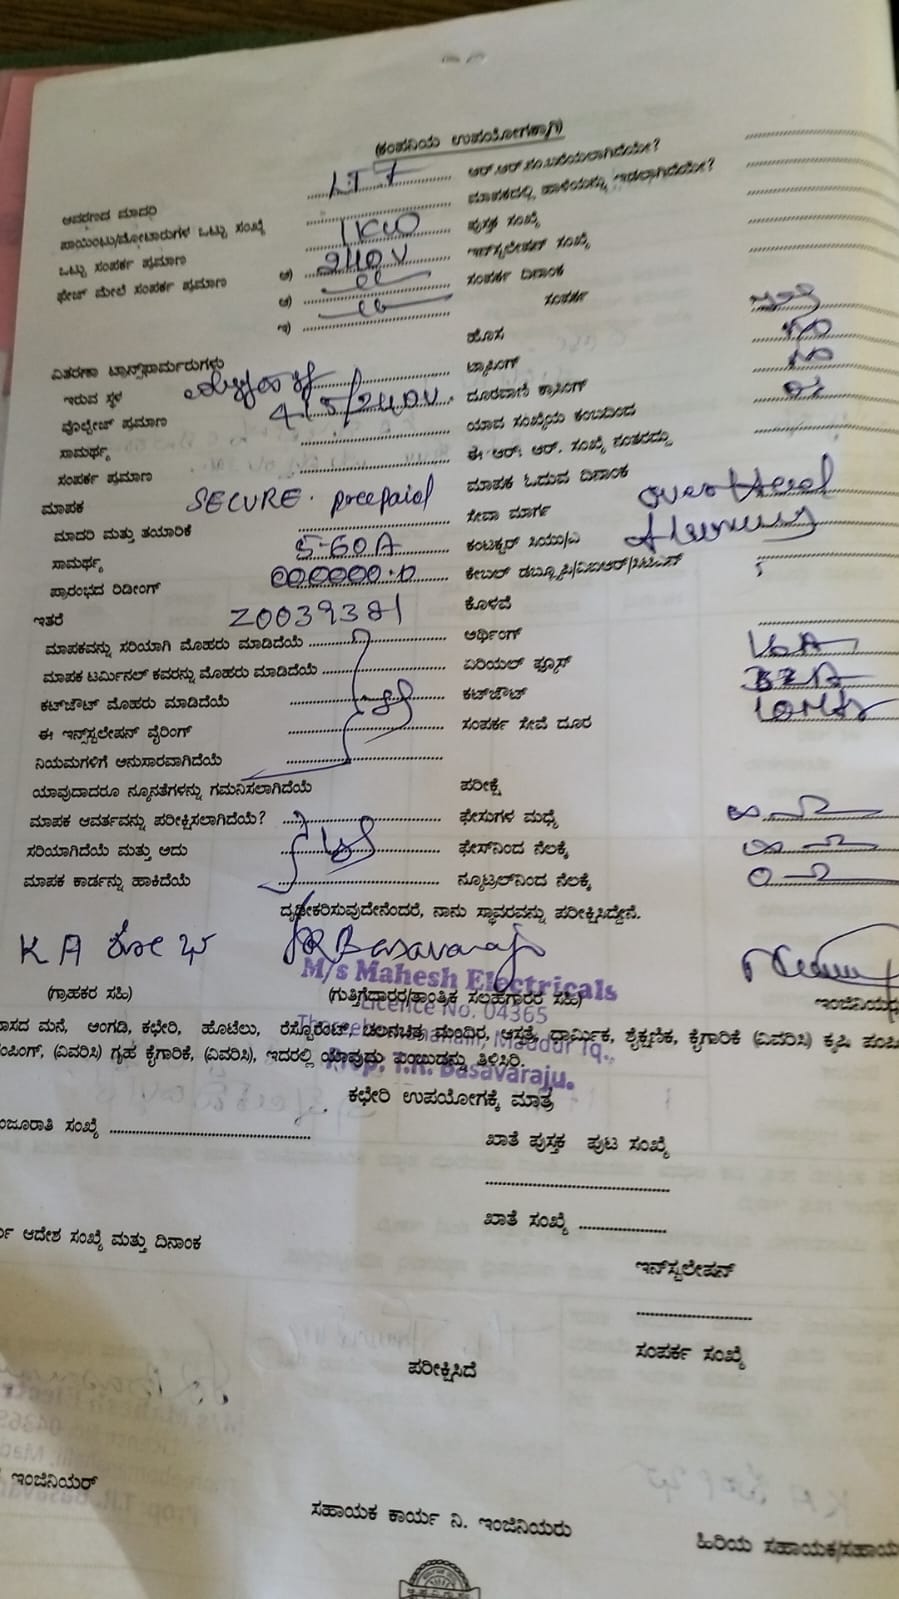 (ಕಂಪನಿಯ ಉಪಯೋಗಕ್ಕಾಗಿ)
LT 7 ಆರ್.ಆರ್.ನಂ.ಬರೆಯಲಾಗಿದೆಯೇ?
ಆವರಣದ ಮಾದರಿ ಮಾಪಕದಲ್ಲಿ ಹಾಳೆಯನ್ನು ಇಡಲಾಗಿದೆಯೇ?
ಪಾಯಿಂಟು/ಮೋಟಾರುಗಳ ಒಟ್ಟು ಸಂಖ್ಯೆ ಪುಸ್ತಕ ಸಂಖ್ಯೆ
ಒಟ್ಟು ಸಂಪರ್ಕ ಪ್ರಮಾಣ 1KW ಇನ್‌ಸ್ಟಲೇಷನ್ ಸಂಖ್ಯೆ
ಫೇಜ್ ಮೇಲೆ ಸಂಪರ್ಕ ಪ್ರಮಾಣ 240V ಸಂಪರ್ಕ ದಿನಾಂಕ
ಸಂಪರ್ಕ
ಹೊಸ
ವಿತರಣಾ ಟ್ರಾನ್ಸ್‌ಫಾರ್ಮರುಗಳು ಟ್ರಾಸಿಂಗ್
ಇರುವ ಸ್ಥಳ ದೂರವಾಣಿ ಕ್ರಾಸಿಂಗ್
ವೊಲ್ಟೇಜ್ ಪ್ರಮಾಣ 415/240V ಯಾವ ಸಂಖ್ಯೆಯ ಕಂಬದಿಂದ
ಸಾಮರ್ಥ್ಯ ಈ ಆರ್. ಆರ್. ಸಂಖ್ಯೆ ನಂತರದ್ದು
ಸಂಪರ್ಕ ಪ್ರಮಾಣ ಮಾಪಕ ಓದುವ ದಿನಾಂಕ
ಮಾಪಕ SECURE. preepaid ಸೇವಾ ಮಾರ್ಗ overHead
ಮಾದರಿ ಮತ್ತು ತಯಾರಿಕೆ ಕಂಟಕ್ಟರ್ ಸಿಯು/ಎ
ಸಾಮರ್ಥ್ಯ 5-60A
ಪ್ರಾರಂಭದ ರಿಡೀಂಗ್ 000000.0
ಇತರೆ Z0039381 ಕೊಳವೆ
ಮಾಪಕವನ್ನು ಸರಿಯಾಗಿ ಮೊಹರು ಮಾಡಿದೆಯೆ ಅರ್ಥಿಂಗ್
ಮಾಪಕ ಟರ್ಮಿನಲ್ ಕವರನ್ನು ಮೊಹರು ಮಾಡಿದೆಯೆ ಏರಿಯಲ್ ಫ್ಯೂಸ್
ಕಟ್‌ಔಟ್ ಮೊಹರು ಮಾಡಿದೆಯೆ ಕಟ್‌ಔಟ್
ಈ ಇನ್ಸ್‌ಟಲೇಷನ್ ವೈರಿಂಗ್ ಸಂಪರ್ಕ ಸೇವೆ ದೂರ
ನಿಯಮಗಳಿಗೆ ಅನುಸಾರವಾಗಿದೆಯೆ
ಯಾವುದಾದರೂ ನ್ಯೂನತೆಗಳನ್ನು ಗಮನಿಸಲಾಗಿದೆಯೆ ಪರೀಕ್ಷೆ
ಮಾಪಕ ಆವರ್ತವನ್ನು ಪರೀಕ್ಷಿಸಲಾಗಿದೆಯೆ? ಫೇಸುಗಳ ಮಧ್ಯೆ
ಸರಿಯಾಗಿದೆಯೆ ಮತ್ತು ಅದು ಫೇಸ್‌ನಿಂದ ನೆಲಕ್ಕೆ
ಮಾಪಕ ಕಾರ್ಡನ್ನು ಹಾಕಿದೆಯೆ ನ್ಯೂಟ್ರಲ್‌ನಿಂದ ನೆಲಕ್ಕೆ
ದೃಢೀಕರಿಸುವುದೇನೆಂದರೆ, ನಾನು ಸ್ಥಾವರವನ್ನು ಪರೀಕ್ಷಿಸಿದ್ದೇನೆ.
K A ಶೋಭ Basavaraj
M/s Mahesh Electricals
(ಗ್ರಾಹಕರ ಸಹಿ) (ಗುತ್ತಿಗೆದಾರರ/ತಾಂತ್ರಿಕ ಸಲಹೆಗಾರರ ಸಹಿ) ಇಂಜಿನಿಯರ
Licence No. 04365
ಾಸದ ಮನೆ, ಅಂಗಡಿ, ಕಛೇರಿ, ಹೊಟೆಲು, ರೆಸ್ಟೊರೆಂಟ್, ಚಲನಚಿತ್ರ ಮಂದಿರ, ಆಸ್ಪತ್ರೆ, ಧಾರ್ಮಿಕ, ಶೈಕ್ಷಣಿಕ, ಕೈಗಾರಿಕೆ (ವಿವರಿಸಿ) ಕೃಷಿ ಪಂಪಿ
Maddur Tq.,
ಂಪಿಂಗ್, (ವಿವರಿಸಿ) ಗೃಹ ಕೈಗಾರಿಕೆ, (ವಿವರಿಸಿ), ಇದರಲ್ಲಿ ಯಾವುದು ಎಂಬುಡನ್ನು ತಿಳಿಸಿರಿ.
Prop. T.R. Basavaraju.
ಕಛೇರಿ ಉಪಯೋಗಕ್ಕೆ ಮಾತ್ರ
ಂಜೂರಾತಿ ಸಂಖ್ಯೆ ಖಾತೆ ಪುಸ್ತಕ ಪುಟ ಸಂಖ್ಯೆ
ಖಾತೆ ಸಂಖ್ಯೆ
ಆದೇಶ ಸಂಖ್ಯೆ ಮತ್ತು ದಿನಾಂಕ
ಇನ್‌ಸ್ಟಲೇಷನ್
ಸಂಪರ್ಕ ಸಂಖ್ಯೆ
ಪರೀಕ್ಷಿಸಿದೆ
ಇಂಜಿನಿಯರ್
ಸಹಾಯಕ ಕಾರ್ಯ ನಿ. ಇಂಜಿನಿಯರು
ಹಿರಿಯ ಸಹಾಯಕ/ಸಹಾಯ